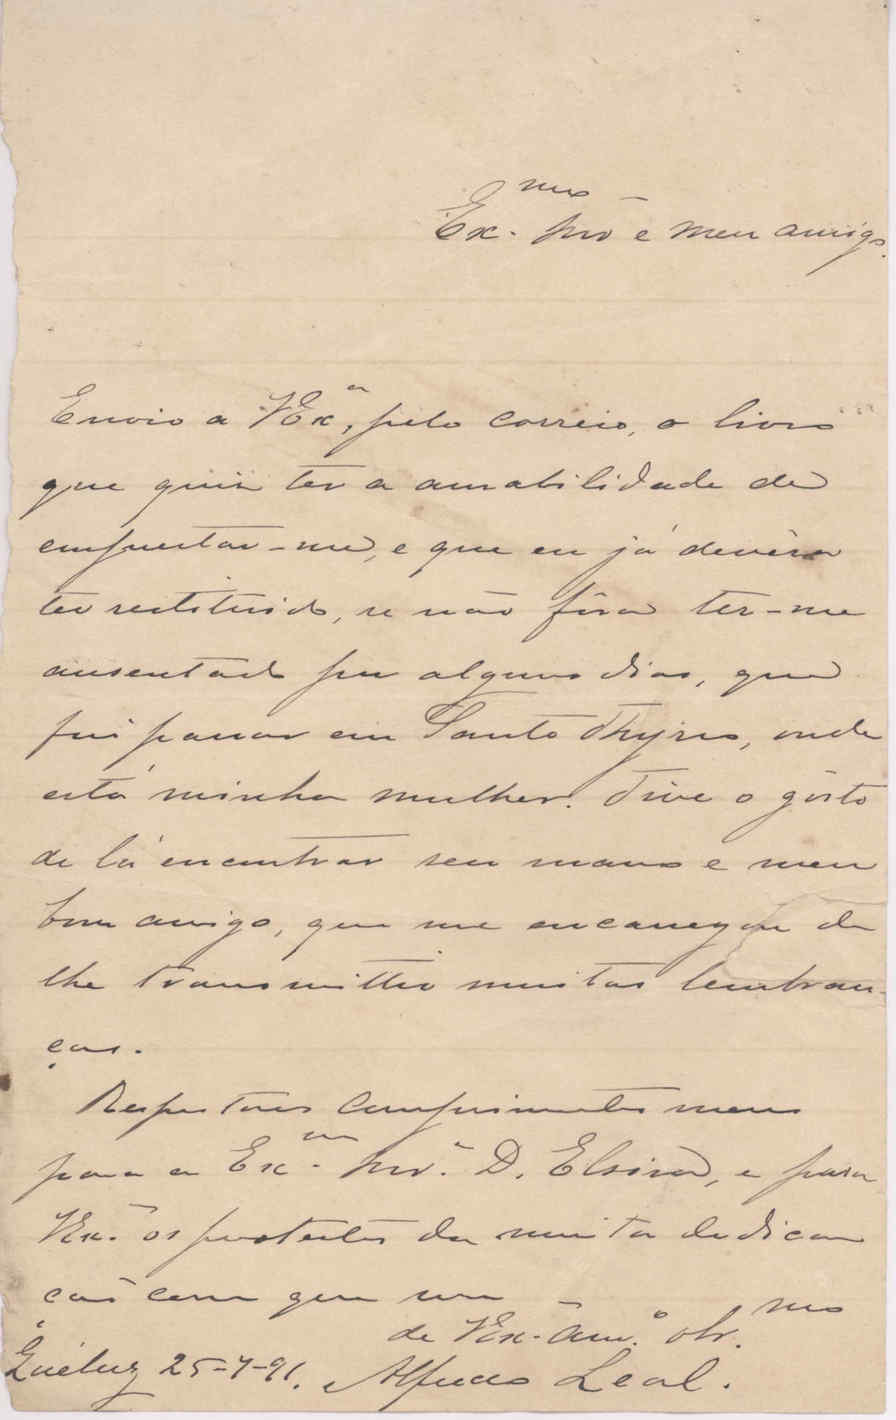 Ex.mo Snr e meu amigo.
Envio a VExª, pelo correio, o livro
que quiz ter a amabilidade de
emprestar-me, e que eu já devêra
ter restituido, se não fôra ter-me
ausentado por alguns dias, que
fui passar em Santo Thyrso, onde
está minha mulher. Tive o gôsto
de lá encontrar seu mano e meu
bom amigo, que me encarregou de
lhe transmittir muitas lembran-
ças.
Respeitosos cumprimentos meus
para a Ex.ma Snr.ª D. Elvira, e para
VEx.ª os protestos da muita dedica
ção com que sou
de VEx.ª am.º obr.mo
25-7-91. Alfredo Leal.